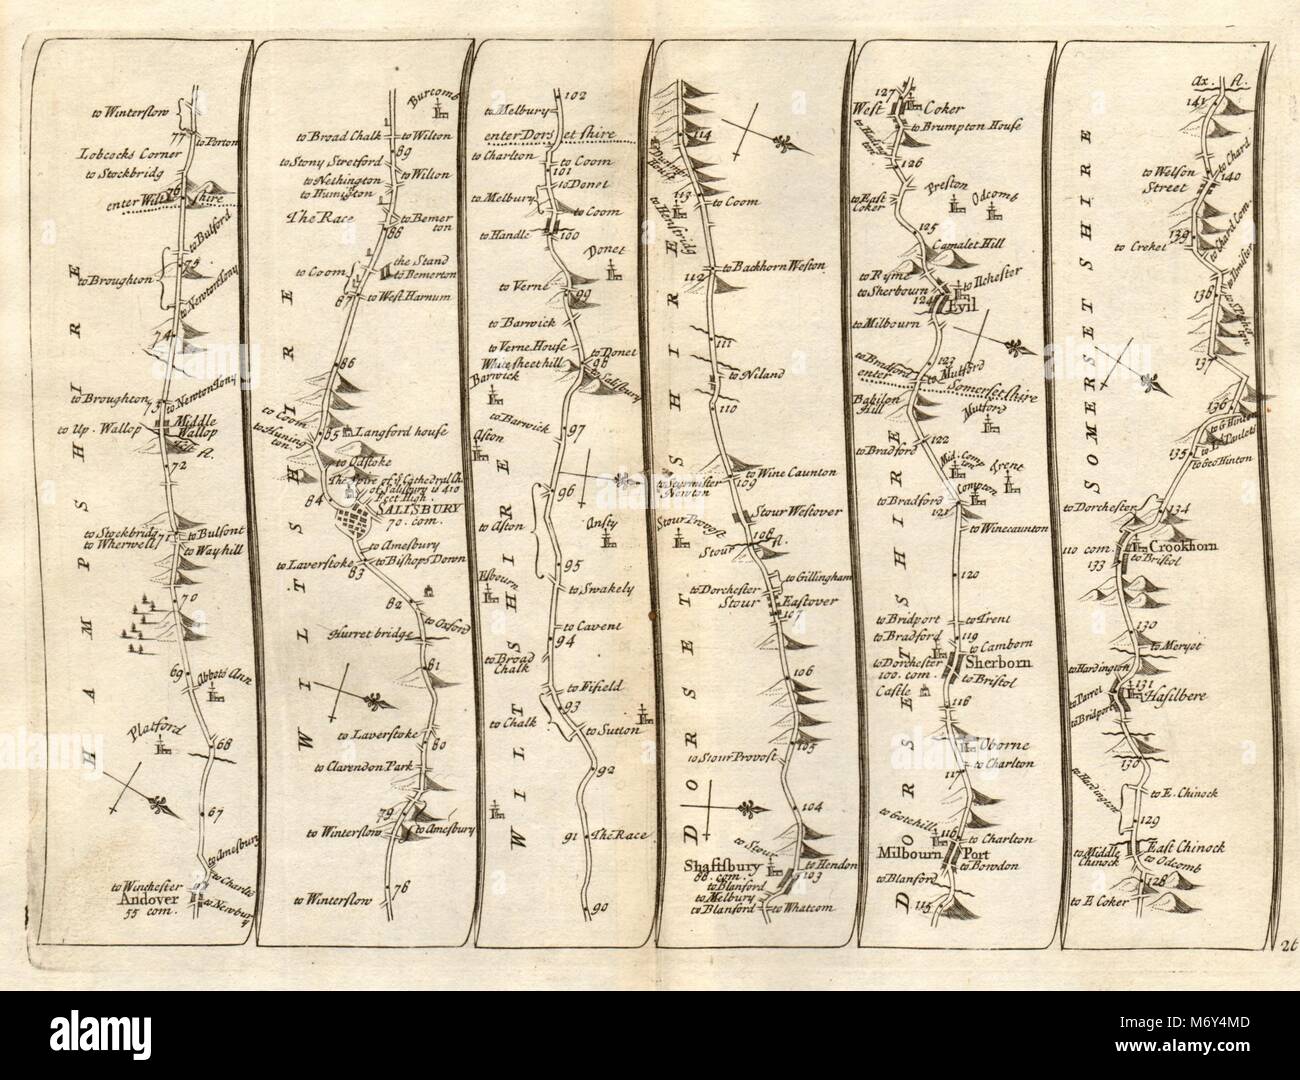 HAMPSHIRE
to Winterslow
77
to Porton
Lobcocks Corner
to Stockbridg
76
enter Wiltshire
to Bulford
75
to Broughton
to Newton Tony
74
to Broughton
73
to Newton Tony
to Up. Wallop
Middle
Wallop
72
to Stockbridg
to Wherwell
71
to Bulfont
to Wayhill
70
69
Abbots Ann
Platford
68
67
to Amesbury
to Winchester
to Charlis
Andover
55 com.
to Newbury
WILTSHIRE
Burcomb
to Broad Chalk
to Wilton
89
to Stony Stretford
to Nethington
to Wilton
to Humigton
The Race
to Bemerton
88
the Stand
to Coom
to Bemerton
87
to West Harnum
86
to Coom
85
Langford house
to Hunington
to Odstoke
The Spire of ye Cathedral Ch.
of Salisbury is 410
feet high.
84
SALISBURY
70. com.
to Amesbury
to Laverstoke
to Bishops Down
83
82
to Oxford
Hurret bridge
81
to Laverstoke
80
to Clarendon Park
79
to Winterslow
to Amesbury
to Winterslow
78
WILTSHIRE
102
to Melbury
enter Dorsetshire
to Charlton
to Coom
101
to Donet
to Melbury
to Coom
to Handle
100
Donet
to Verne
99
to Barwick
to Verne House
to Donet
White sheet hill
98
to Salisbury
Barwick
to Barwick
97
Aston
96
to Aston
Ansty
95
Esbourn
to Swakely
to Cavent
94
to Broad
Chalk
to Fifield
93
to Chalk
to Sutton
92
91
The Race
90
DORSETSHIRE
114
113
to Henstridg
to Coom
112
to Backhorn Weston
111
to Niland
110
to Wine Caunton
to Sturmister
Newton
109
Stour Provost
Stour Westover
108
Stour fl.
to Gillingham
to Dorchester
Stour Eastover
107
106
105
to Stour Provost
104
to Stour
Shaftsbury
to Hendon
103
88. com.
to Blanford
to Melbury
to Blanford
to Whatcom
DORSETSHIRE
127
West Coker
to Brumpton House
126
Preston
Odcomb
to East
Coker
125
Camalet Hill
to Ryme
to Ilchester
to Sherbourn
124
Evil
to Milbourn
123
to Bradford
to Mutford
enter Somersetshire
Babilon
Hill
Mutford
122
to Bradford
Mid. Compton
Trent
Compton
to Bradford
121
to Winecaunton
120
to Bridport
to Trent
to Bradford
119
to Camborn
to Dorchester
Sherborn
100. com.
to Bristol
Castle
118
Oborne
117
to Charlton
to Gotehill
116
to Charlton
Milbourn Port
to Bowdon
to Blanford
115
SOMERSETSHIRE
Ax. fl.
141
to Chard
to Wolson
Street
140
139
to Chard Com.
to Crekel
to Ilmister
138
137
136
135
to Geo Hinton
to Dorchester
134
110 com.
Crookhorn
133
to Bristol
130
to Meryot
to Hardington
131
to Parret
Hasilbere
to Bridport
130
to Hardington
to E. Chinock
129
to Middle
Chinock
East Chinock
to Odcomb
128
to E Coker
26
alamy
Image ID: M6Y4MD
www.alamy.com